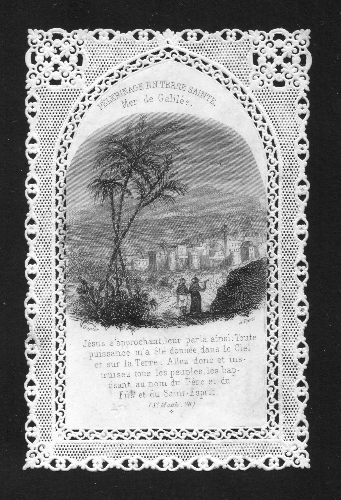 PÈLERINAGE EN TERRE SAINTE.
Mer de Galilée.
Jésus s'approchant, leur parla ainsi: Toute
puissance m'a été donnée dans le Ciel
et sur la Terre; Allez donc et ins-
truisez tous les peuples, les bap-
tisant au nom du Père et du
Fils et du Saint-Esprit.